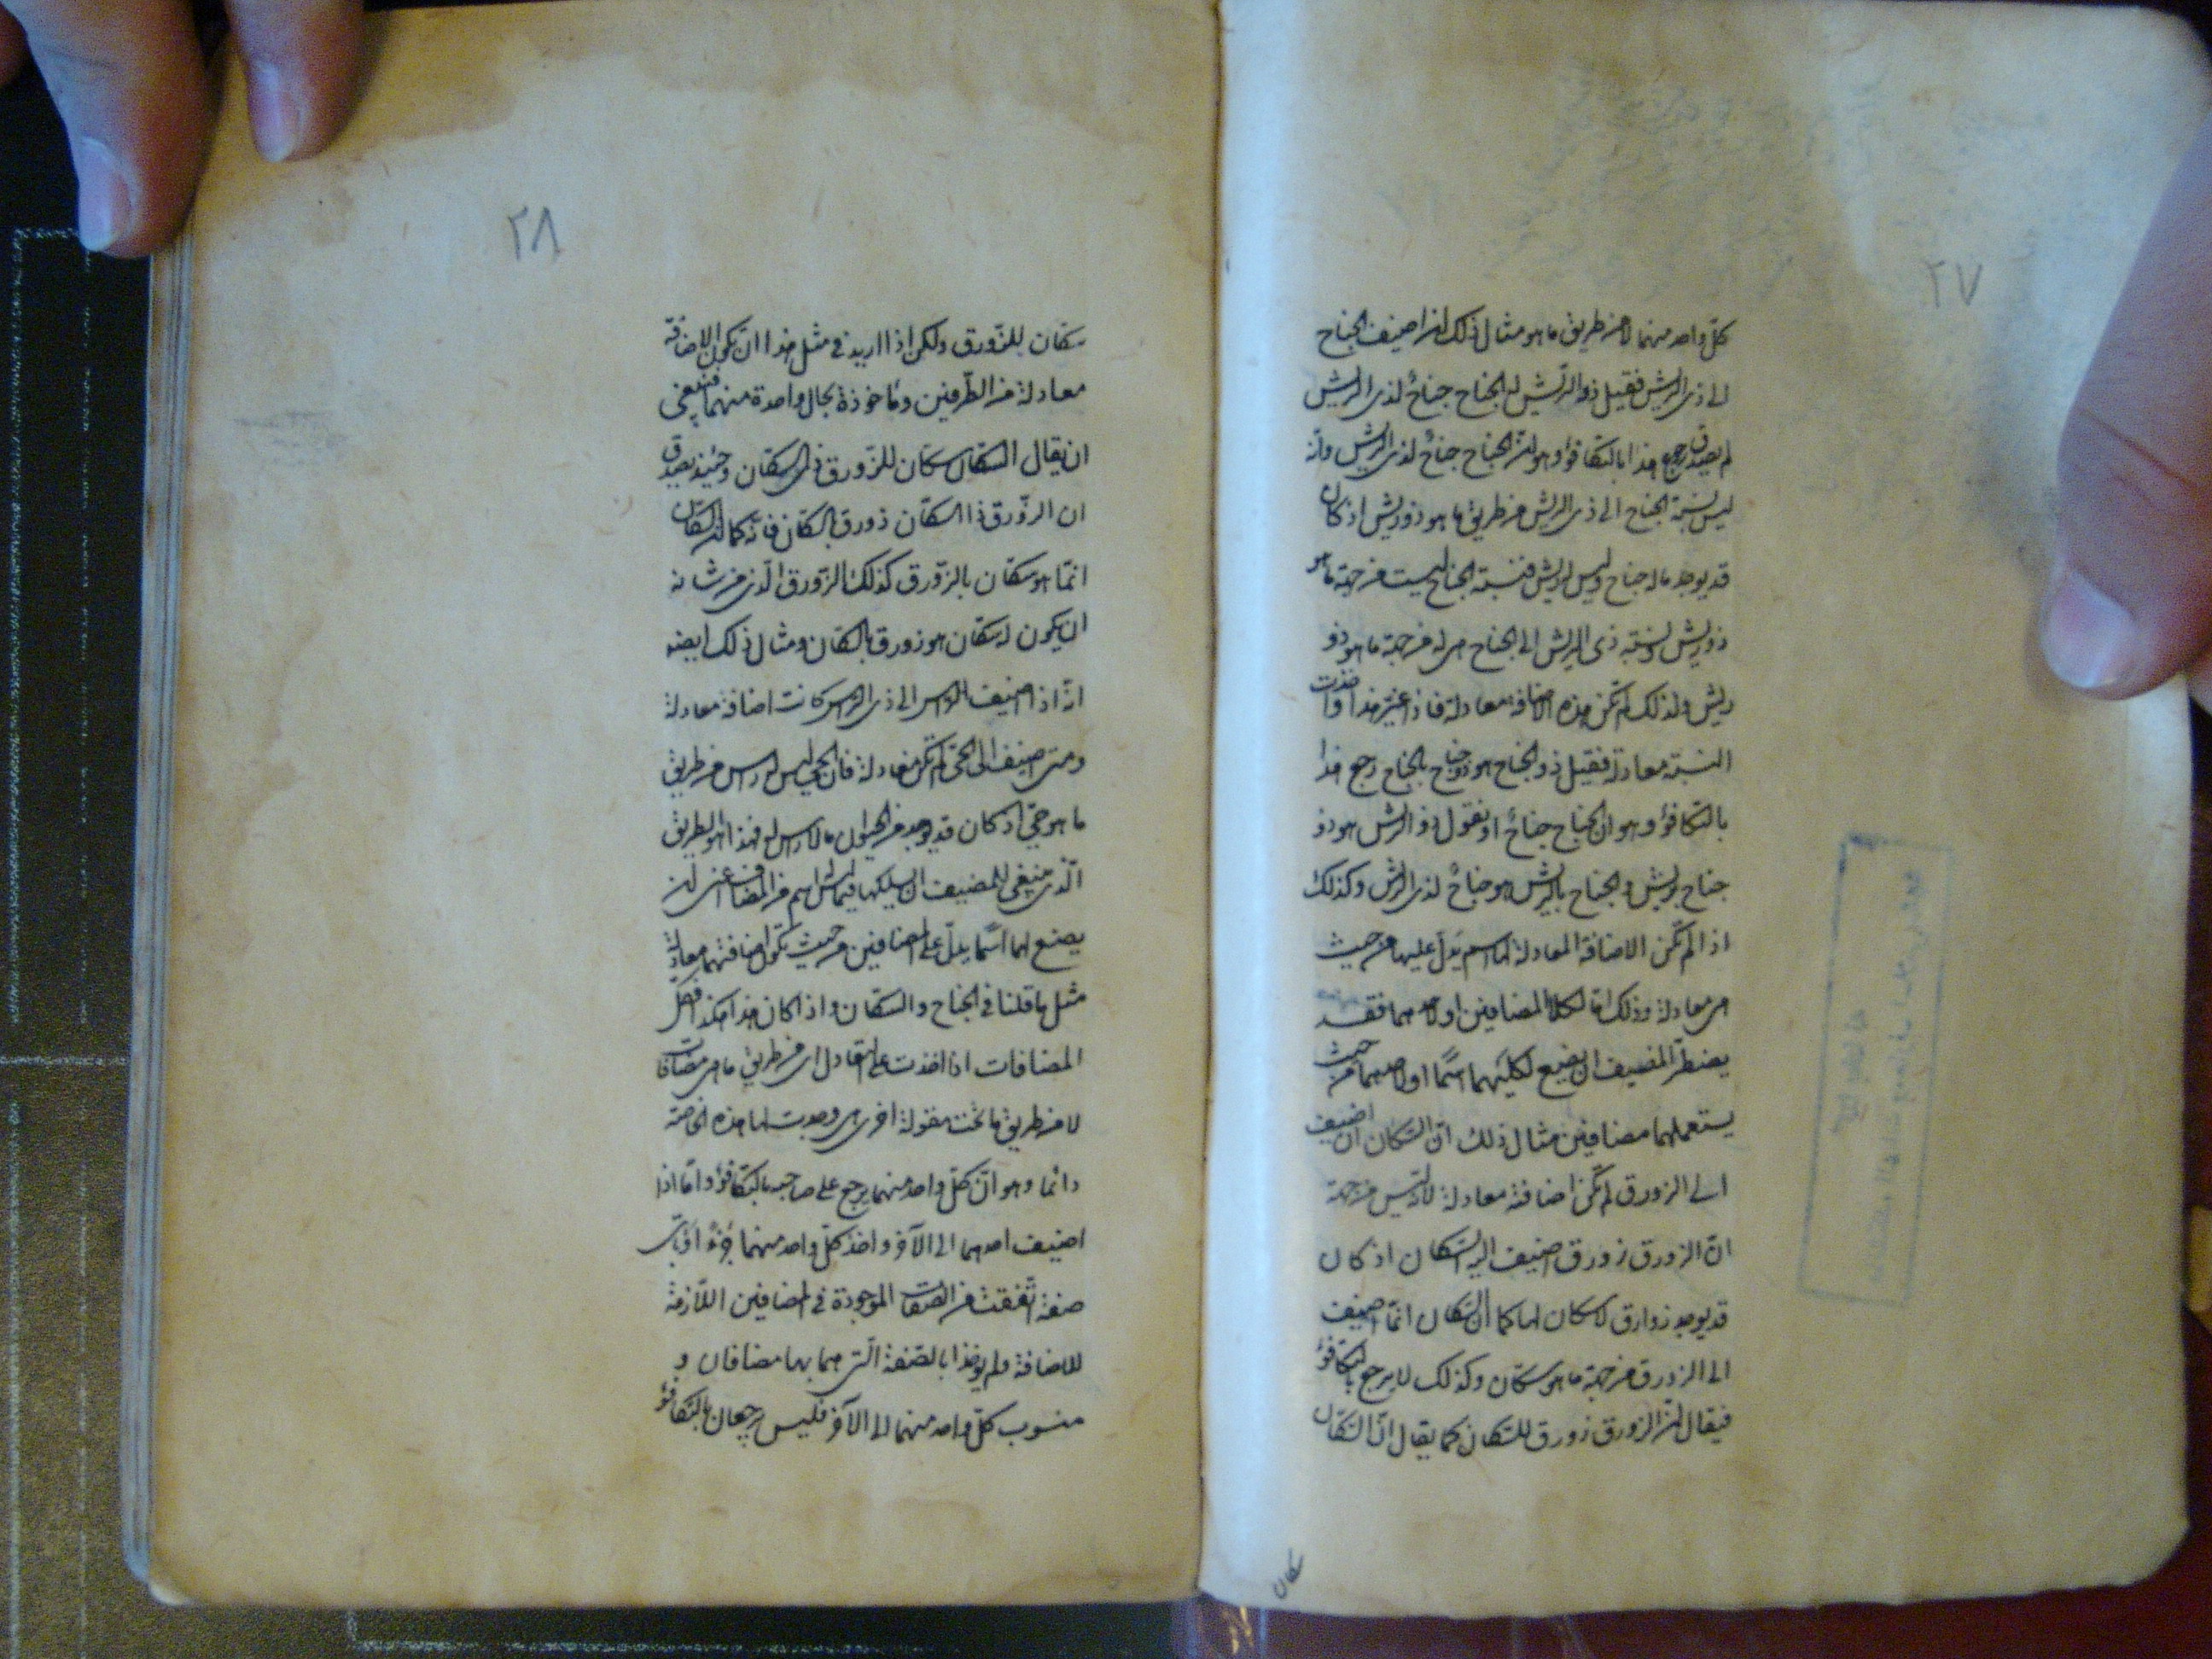 ٢٧
كل واحد منهما لا من طريق ما هو مثال ذلك ان اضيف الجناح
الى ذى الريش فقيل ذو الريش له الجناح جناح لذى الريش
لم يصدق رجوع هذا بالتكافؤ وهو ان الجناح جناح لذى الريش وانه
ليس نسبة الجناح الى ذى الريش من طريق ما هو ذو ريش اذ كان
قد يوجد ما له جناح وليس له ريش فنسبة الجناح ليست من جهة ما هو
ذو ريش ونسبة ذى الريش الى الجناح هى له من جهة ما هو ذو
ريش ولذلك لم تكن هذه الاضافة معادلة فاذا غير هذا واخذت
النسبة معادلة فقيل ذو الجناح هو ذو جناح بالجناح رجع هذا
بالتكافؤ وهو ان الجناح جناح او نقول ذو الريش هو ذو
جناح بريش والجناح بالريش هو جناح لذى الريش وكذلك
اذا لم تكن الاضافة المعادلة لها اسم يدل عليها من حيث
هى معادلة وذلك اما لكلا المضافين او لاحدهما فقد
يضطر المضيف ان يضع لكليهما اسما او لاحدهما من حيث
يستعملهما مضافين مثال ذلك ان السكان ان اضيف
الى الزورق لم تكن اضافة معادلة لانه ليس من جهة
ان الزورق زورق اضيف اليه السكان اذ كان
قد يوجد زوارق لا سكان لها كما ان السكان انما اضيف
الى الزورق من جهة ما هو سكان وكذلك لا يرجع بالتكافؤ
فيقال ان الزورق زورق للسكان كما يقال ان السكان
سكان
٢٨
سكان للزورق ولكن اذا اريد فى مثل هذا ان تكون الاضافة
معادلة من الطرفين وماخوذة بحال واحدة منهما فينبغى
ان يقال السكان سكان للزورق ذى السكان وحينئذ يصدق
ان الزورق ذا السكان زورق بالسكان فانه كما ان السكان
انما هو سكان بالزورق كذلك الزورق الذى من شانه
ان يكون له سكان هو زورق بالسكان ومثال ذلك ايضه
انه اذا اضيف الراس الى ذى الراس كانت اضافة معادلة
ومتى اضيف الى الحى لم تكن معادلة فان الحى ليس له راس من طريق
ما هو حى اذ كان قد يوجد من الحيوان ما لا راس له فهذا هو الطريق
الذى ينبغى للمضيف ان يسلكها فيما ليس له اسم من المضاف اعنى ان
يضع لهما اسما يدل على المضافين من حيث تكون اضافتهما معادلة
مثل ما قلنا فى الجناح والسكان واذا كان هذا هكذا فكل
المضافات اذا اخذت على التعادل اى من طريق ما هى مضافات
لا من طريق ما تحت مقولة اخرى هى وجدت لها هذه الخاصة
دائما وهو ان كل واحد منهما يرجع على صاحبه بالتكافؤ واما اذا
اضيف احدهما الى الآخر واخذ كل واحد منهما جزءا او باى
صفة اتفقت من الصفات الموجودة فى المضافين اللازمة
للاضافة ولم يوخذا بالصفة التى هما بها مضافان و
منسوب كل واحد منهما الى الآخر فليس يرجعان بالتكافؤ